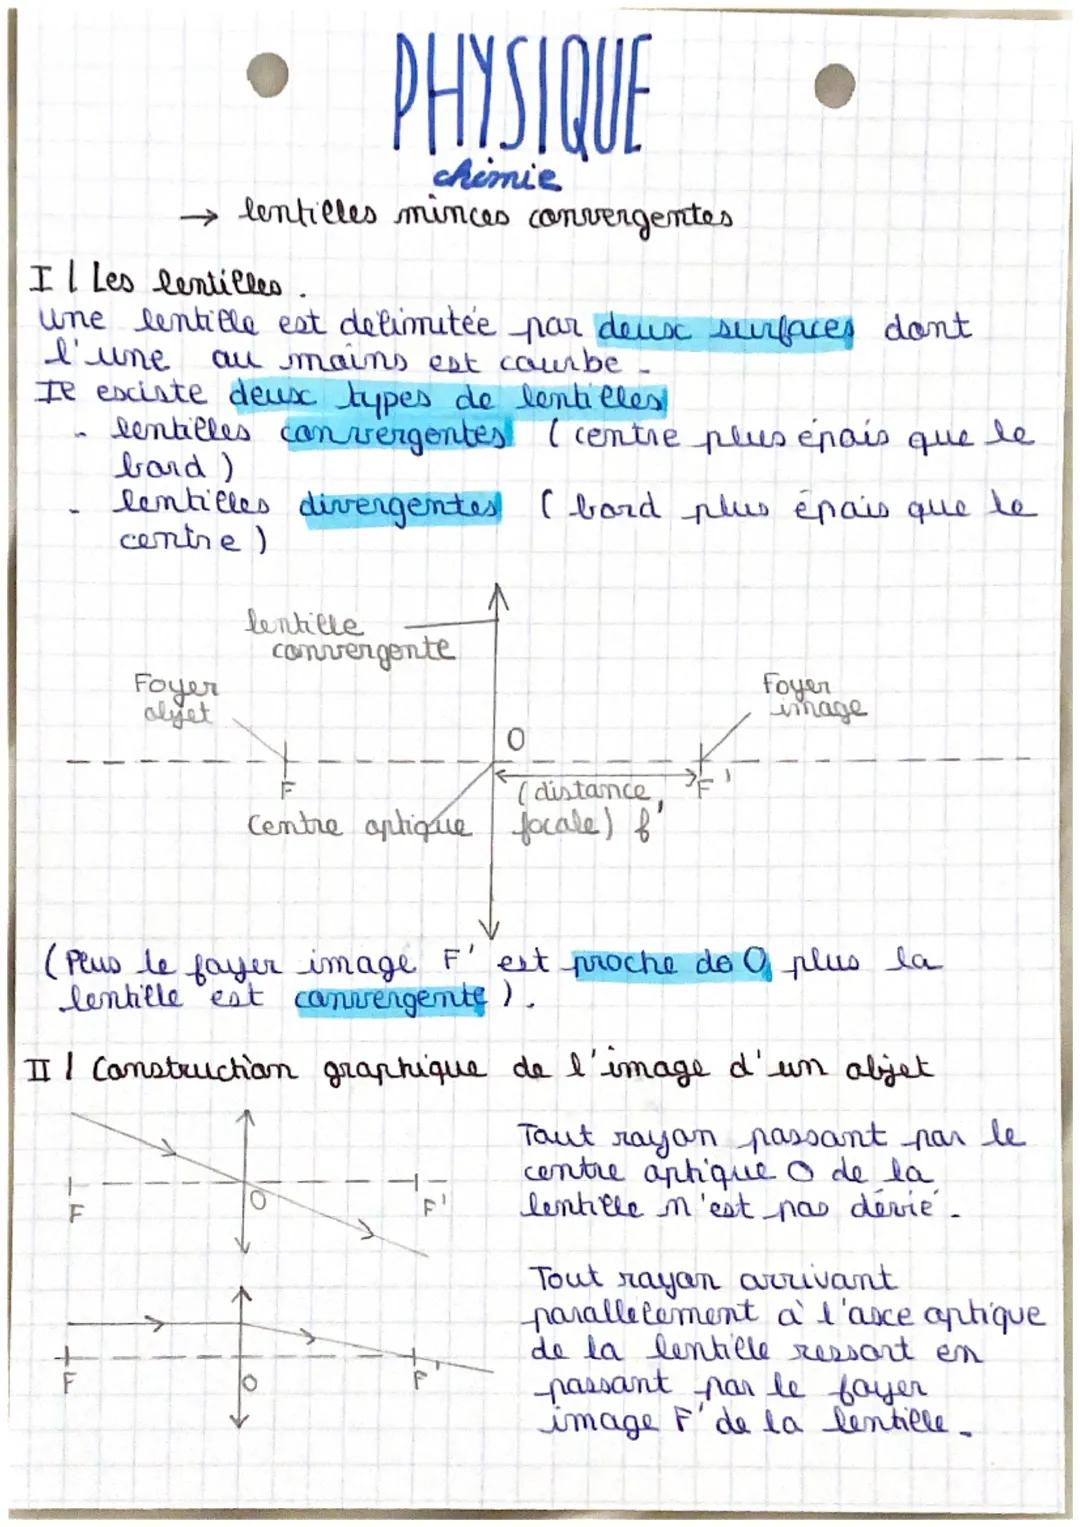 PHYSIQUE
chimie
→ lentilles minces convergentes
I / Les lentilles.
Une lentille est délimitée par deux surfaces dont
l'une au moins est courbe.
Il existe deux types de lentilles
- lentilles convergentes (centre plus épais que le
bord)
- lentilles divergentes (bord plus épais que le
centre)
lentille
convergente
Foyer
objet
Foyer
image
O
F
F'
(distance
focale) f'
Centre optique
(Plus le foyer image F' est proche de O plus la
lentille est convergente).
II / Construction graphique de l'image d'un objet
Tout rayon passant par le
centre optique O de la
lentille n'est pas dévié.
F
O
F'
Tout rayon arrivant
parallèlement à l'axe optique
de la lentille ressort en
passant par le foyer
image F' de la lentille.
F
O
F'